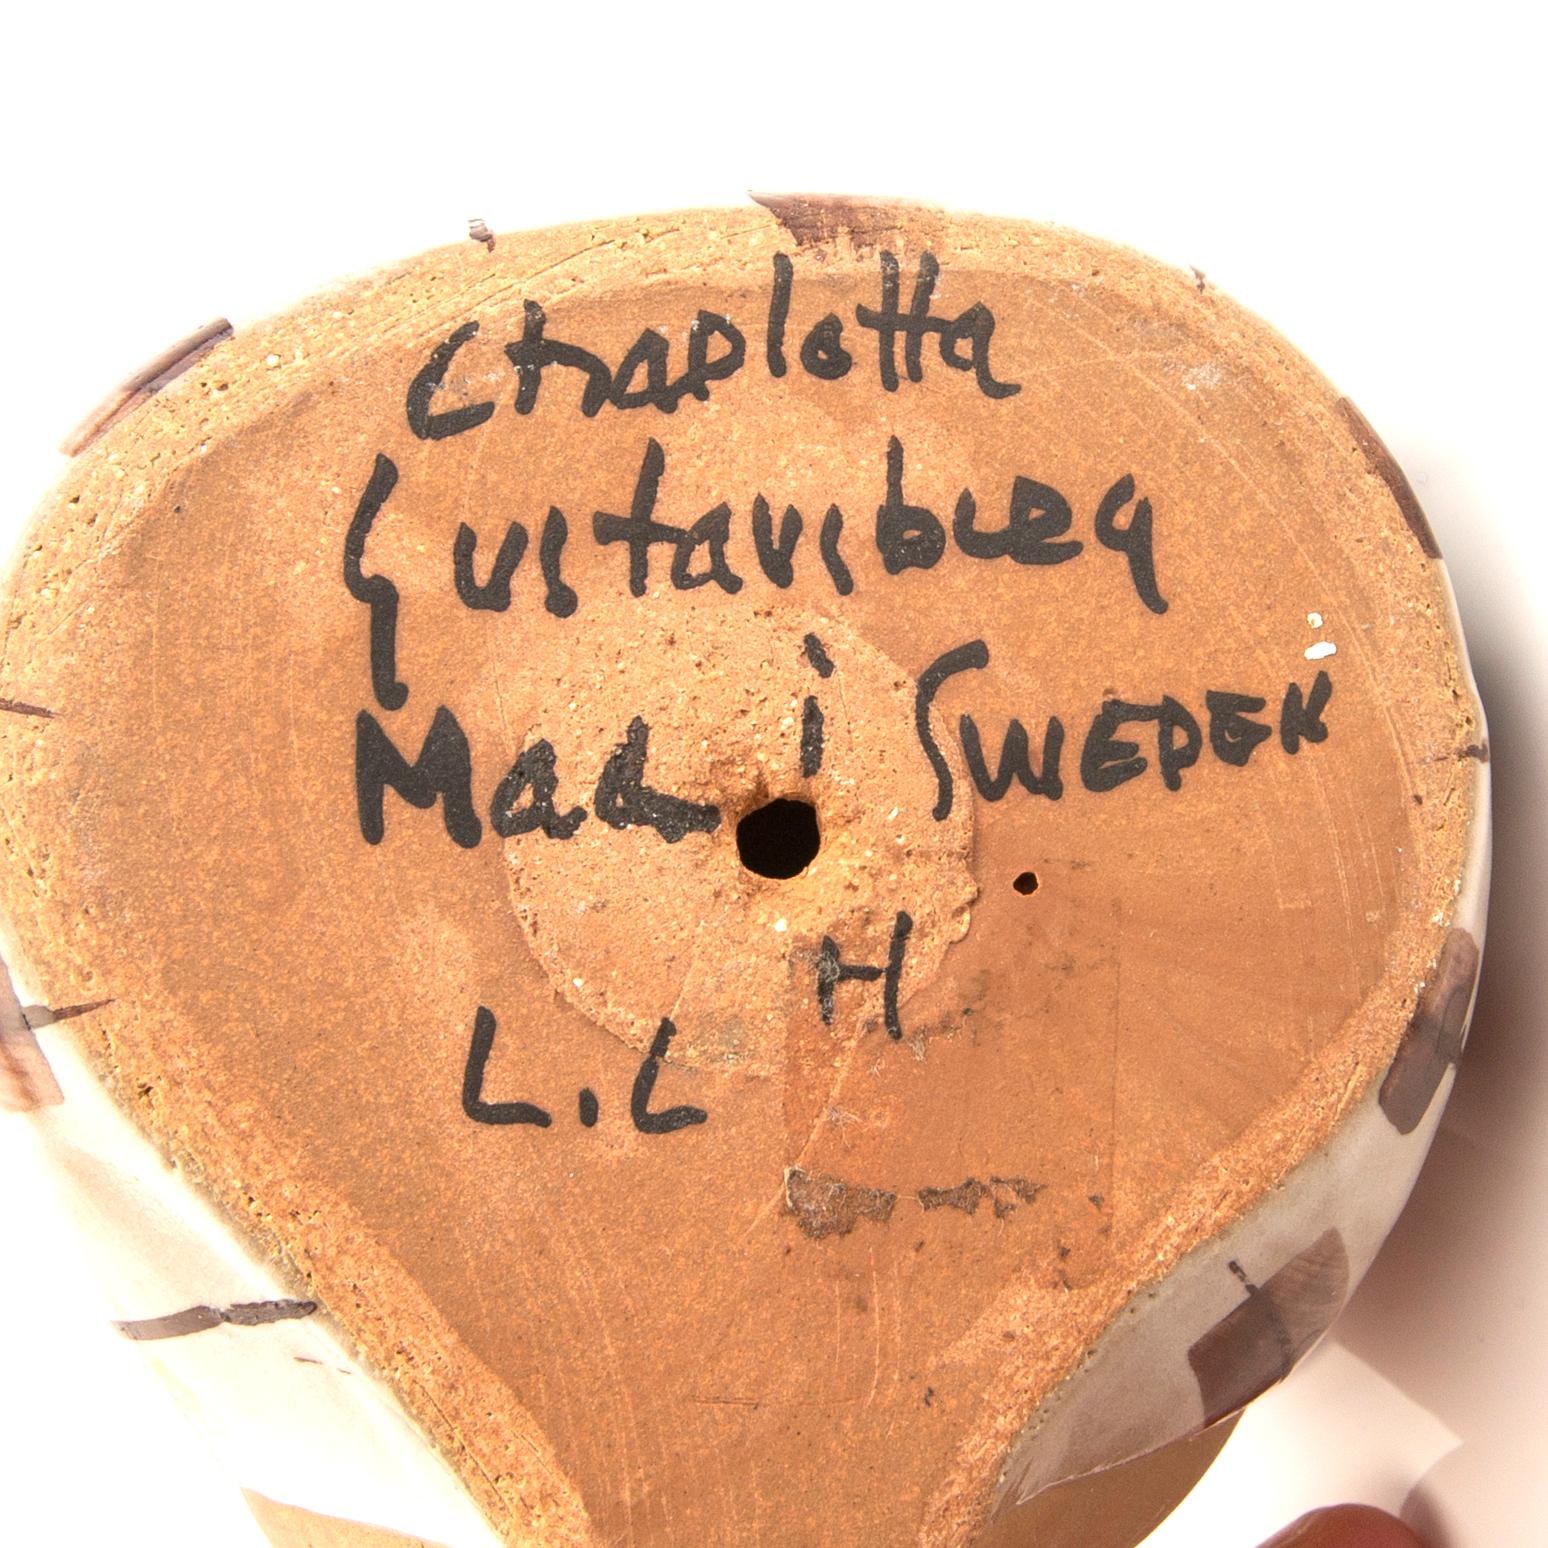 Charlotta
Gustavsberg
Mad i SWEDEN
H
L.L